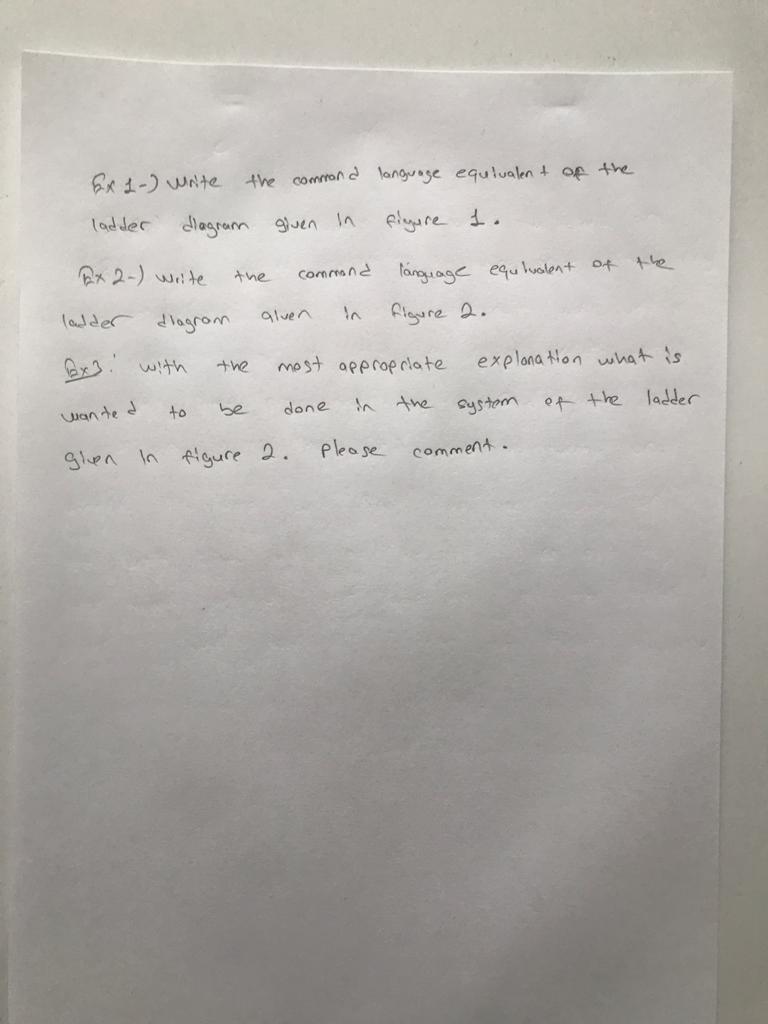 Ex 1-) Write the command language equivalent of the
ladder diagram given in figure 1.
Ex 2-) write the command language equivalent of the
ladder diagram given in figure 2.
Ex3: with the most appropriate explanation what is
wanted to be done in the system of the ladder
given in figure 2. Please comment.